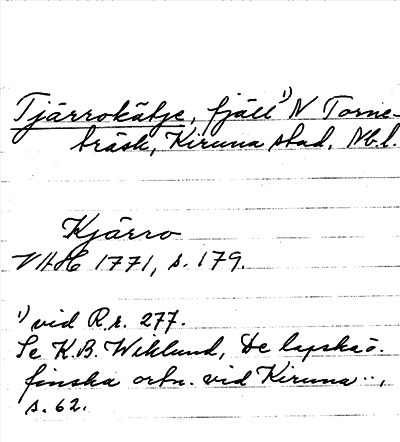 Tjärrokätje, fjäll ¹⁾ N Torne-
träsk, Kiruna stad, Nb.l.
Kjärro
VAH 1771, s. 179.
¹⁾ vid R.r. 277.
Se K.B. Wiklund, De lapska o.
finska ortn. vid Kiruna..,
s. 62.